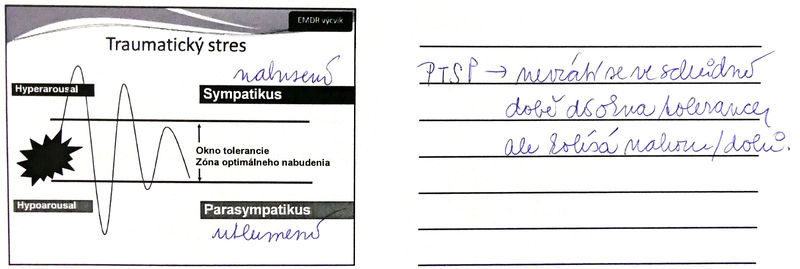 EMDR výcvik
Traumatický stres
nabuzení
Hyperarousal
Sympatikus
Okno tolerancie
Zóna optimálneho nabudenia
Hypoarousal
Parasympatikus
utlumení
PTSP → nevrátí se ve schůdné
době do okna tolerance,
ale kolísá nahoru/dolů.